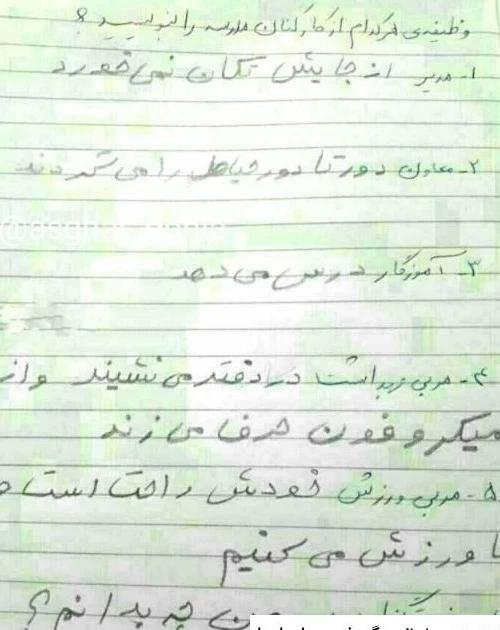 وظیفه‌ی هر کدام از کارکنان مدرسه را بنویسید ؟
۱- مدیر از جایش تکان نمی خورد
۲- معاون دور تا دور حیاط را می گردند
۳- آموزگار درس می دهد
۴- مربی بهداشت در دفتر می نشیند و از
میکروفون حرف می زند
۵- مربی ورزش خودش راحت است
ما ورزش می کنیم
من چه بدانم ؟